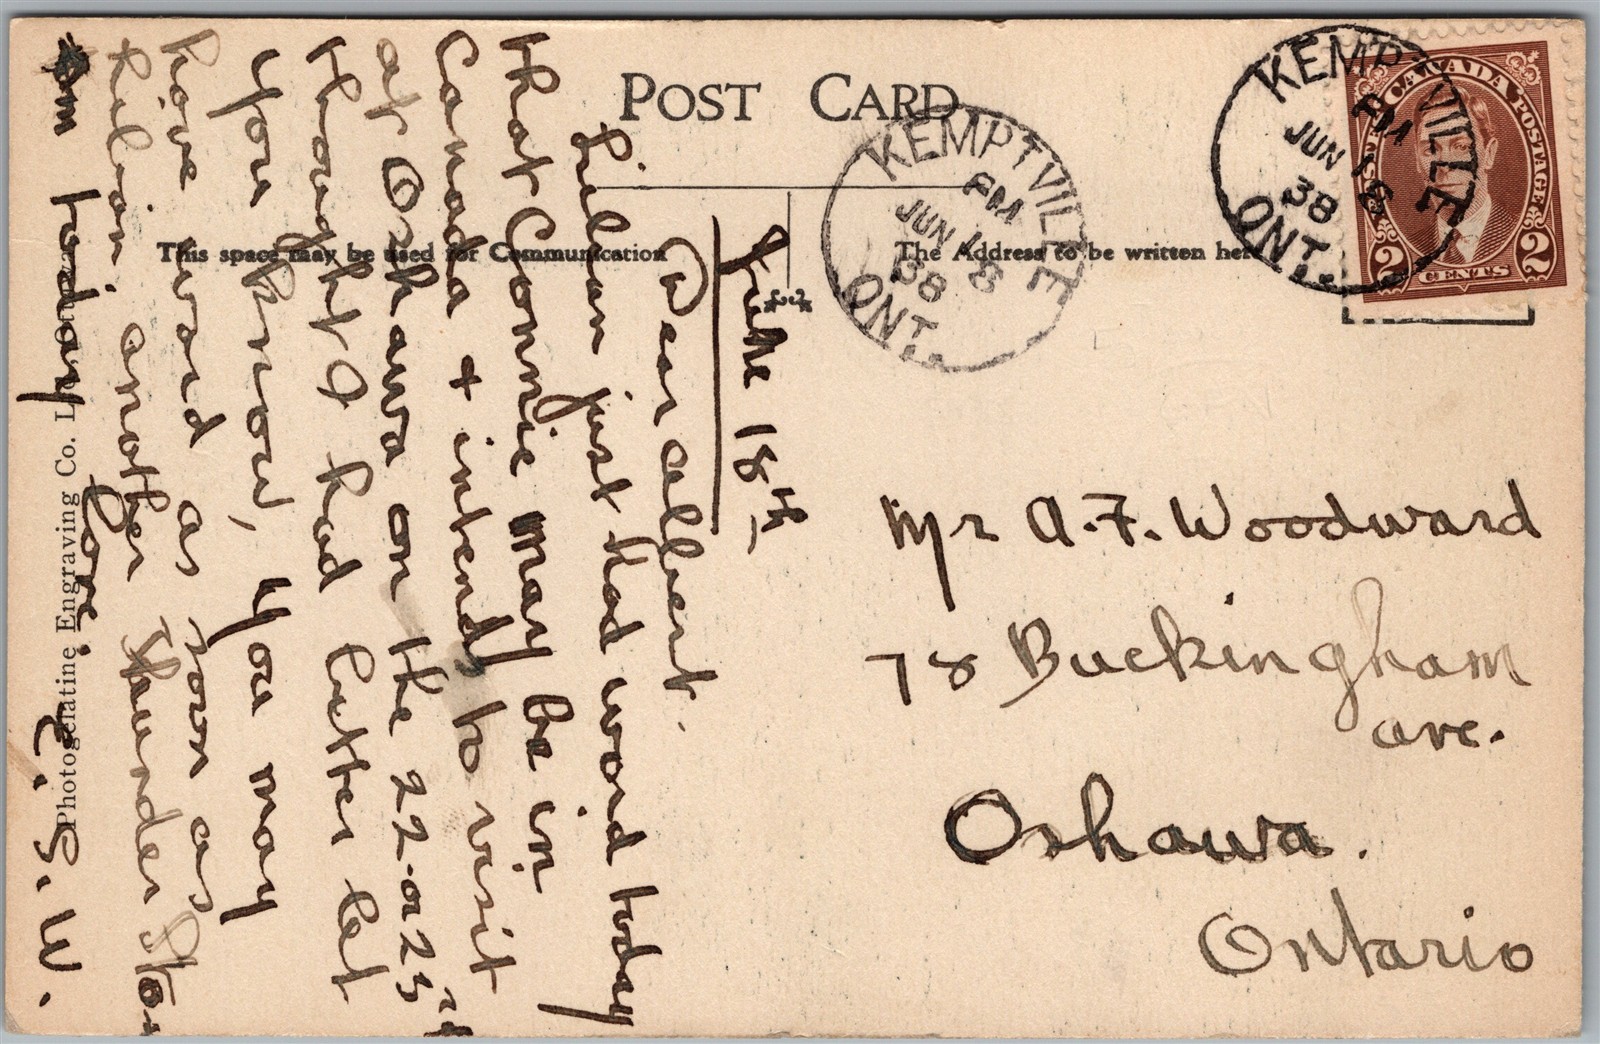 POST CARD
This space may be used for Communication
The Address to be written here
KEMPTVILLE
PM
JUN 18
38
ONT.
KEMPTVILLE
PM
JUN 18
38
ONT.
CANADA POSTAGE
2 CENTS 2
June 18th
Dear albert.
Lilian just had word today
that Connie may be in
Canada & intends to visit
at Oshawa on the 22 or 23rd
thought I had better let
you know, you may
have word as soon as
Lilian another thunder Stor
m today
Love.
E. S. W.
Mr A. F. Woodward
78 Buckingham
ave.
Oshawa.
Ontario
Photogelatine Engraving Co. L